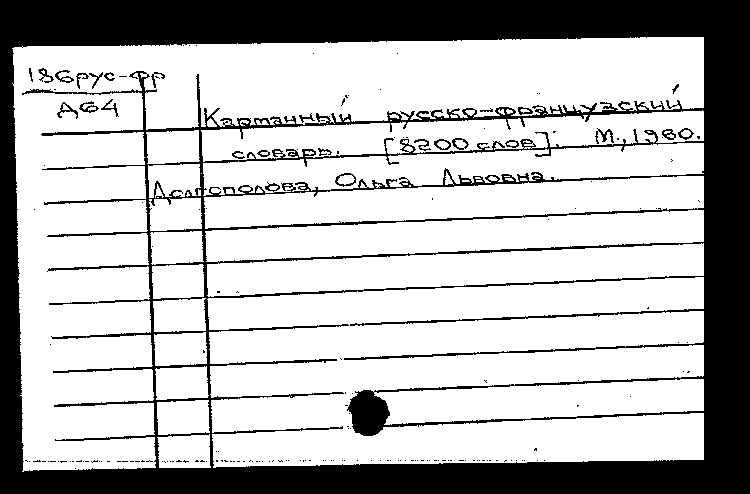 186рус-фр
Д64
Карманный русско-французский
словарь. [8200 слов]. М., 1960.
Долгополова, Ольга Львовна.